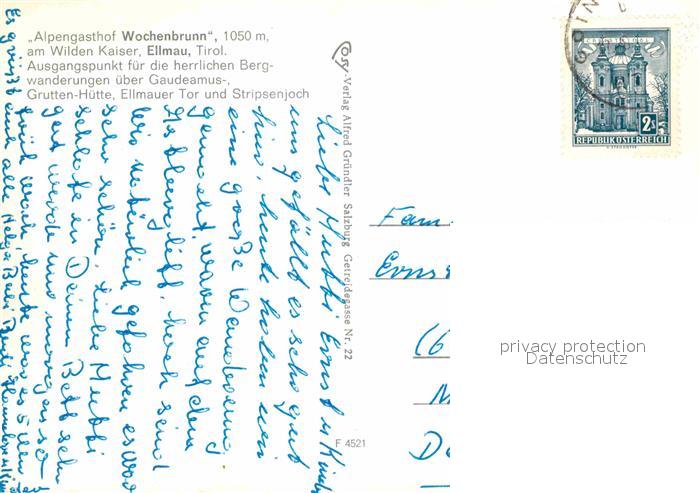 „Alpengasthof Wochenbrunn", 1050 m,
am Wilden Kaiser, Ellmau, Tirol.
Ausgangspunkt für die herrlichen Berg-
wanderungen über Gaudeamus-,
Grutten-Hütte, Ellmauer Tor und Stripsenjoch
Cosy-Verlag Alfred Gründler Salzburg Getreidegasse Nr. 22
F 4521
Liebe Mutti Ernst u Kinder
uns gefällt es sehr gut
hier, heute haben wir
eine große Wanderung
gemacht, waren auf dem
hoch sind
wir natürlich gefahren es war
sehr schön. Liebe Mutti
schlafe in Deinem Bett sehr
gut werde nur morgens so
früh wach, heute war es 5 Uhr
Es grüßt euch alle Helga
Fam.
Erns
(6
M
D
2 S
REPUBLIK ÖSTERREICH
privacy protection
Datenschutz